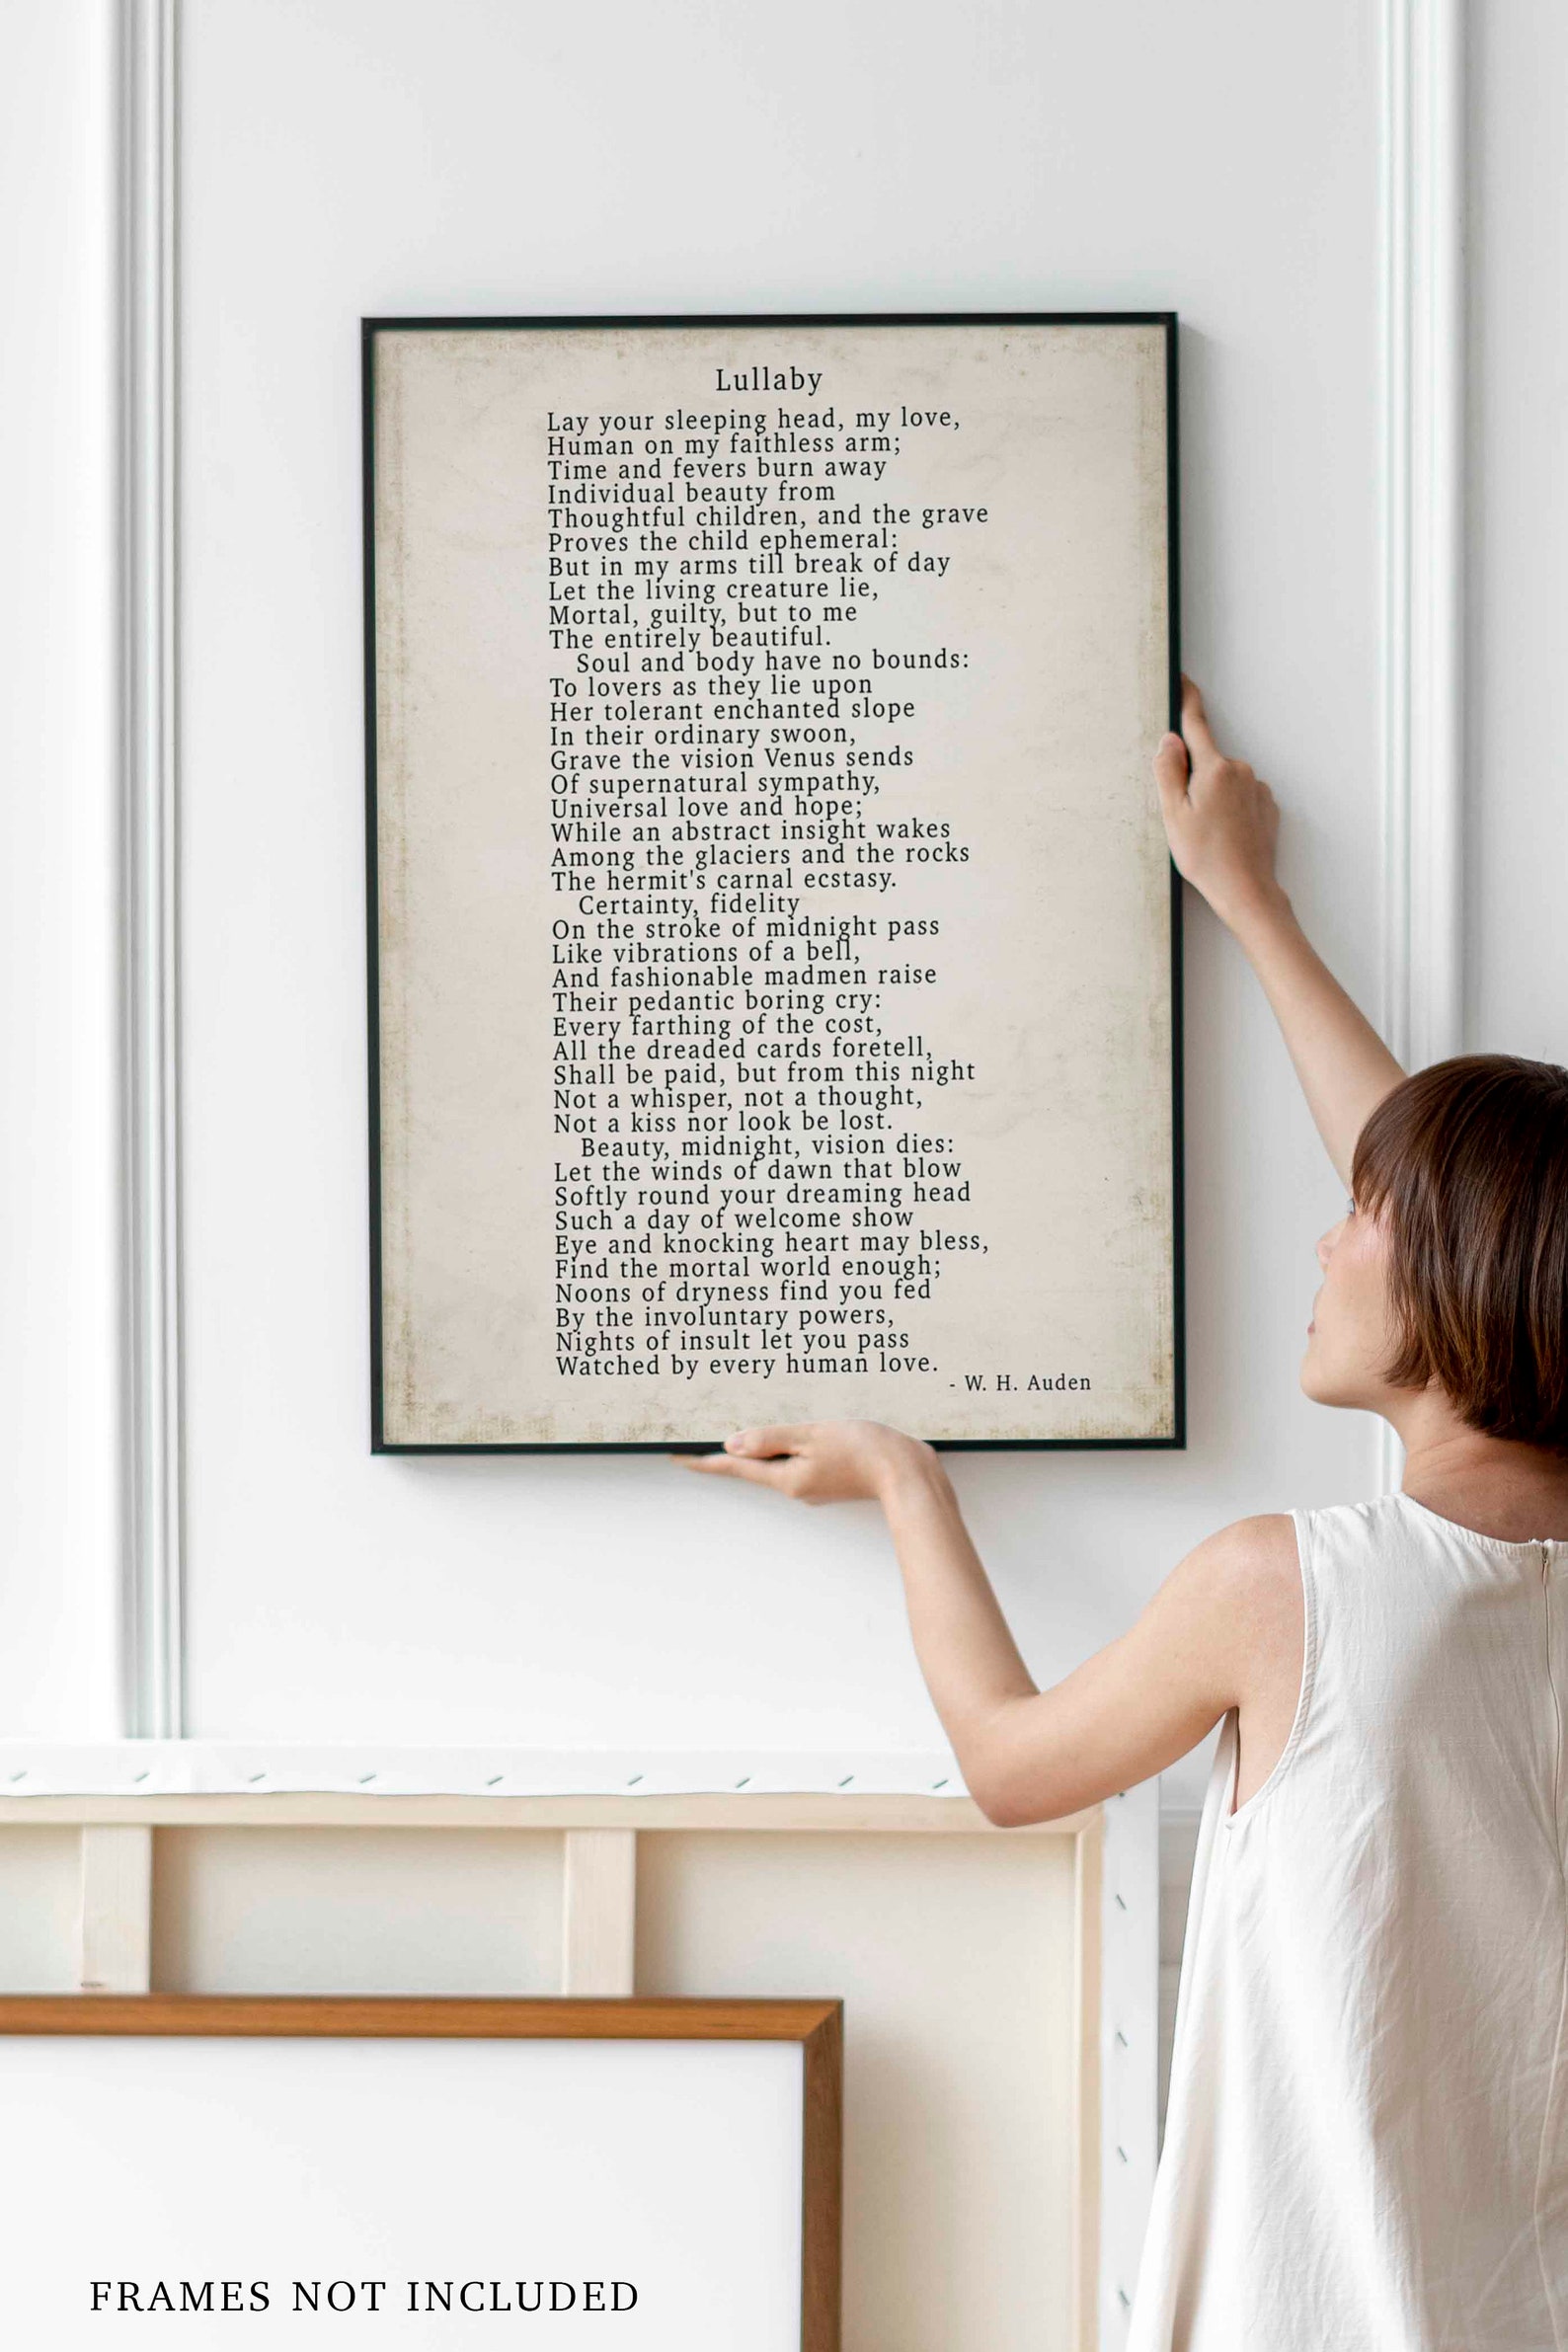 Lullaby
Lay your sleeping head, my love,
Human on my faithless arm;
Time and fevers burn away
Individual beauty from
Thoughtful children, and the grave
Proves the child ephemeral:
But in my arms till break of day
Let the living creature lie,
Mortal, guilty, but to me
The entirely beautiful.
Soul and body have no bounds:
To lovers as they lie upon
Her tolerant enchanted slope
In their ordinary swoon,
Grave the vision Venus sends
Of supernatural sympathy,
Universal love and hope;
While an abstract insight wakes
Among the glaciers and the rocks
The hermit's carnal ecstasy.
Certainty, fidelity
On the stroke of midnight pass
Like vibrations of a bell,
And fashionable madmen raise
Their pedantic boring cry:
Every farthing of the cost,
All the dreaded cards foretell,
Shall be paid, but from this night
Not a whisper, not a thought,
Not a kiss nor look be lost.
Beauty, midnight, vision dies:
Let the winds of dawn that blow
Softly round your dreaming head
Such a day of welcome show
Eye and knocking heart may bless,
Find the mortal world enough;
Noons of dryness find you fed
By the involuntary powers,
Nights of insult let you pass
Watched by every human love.
- W. H. Auden
FRAMES NOT INCLUDED